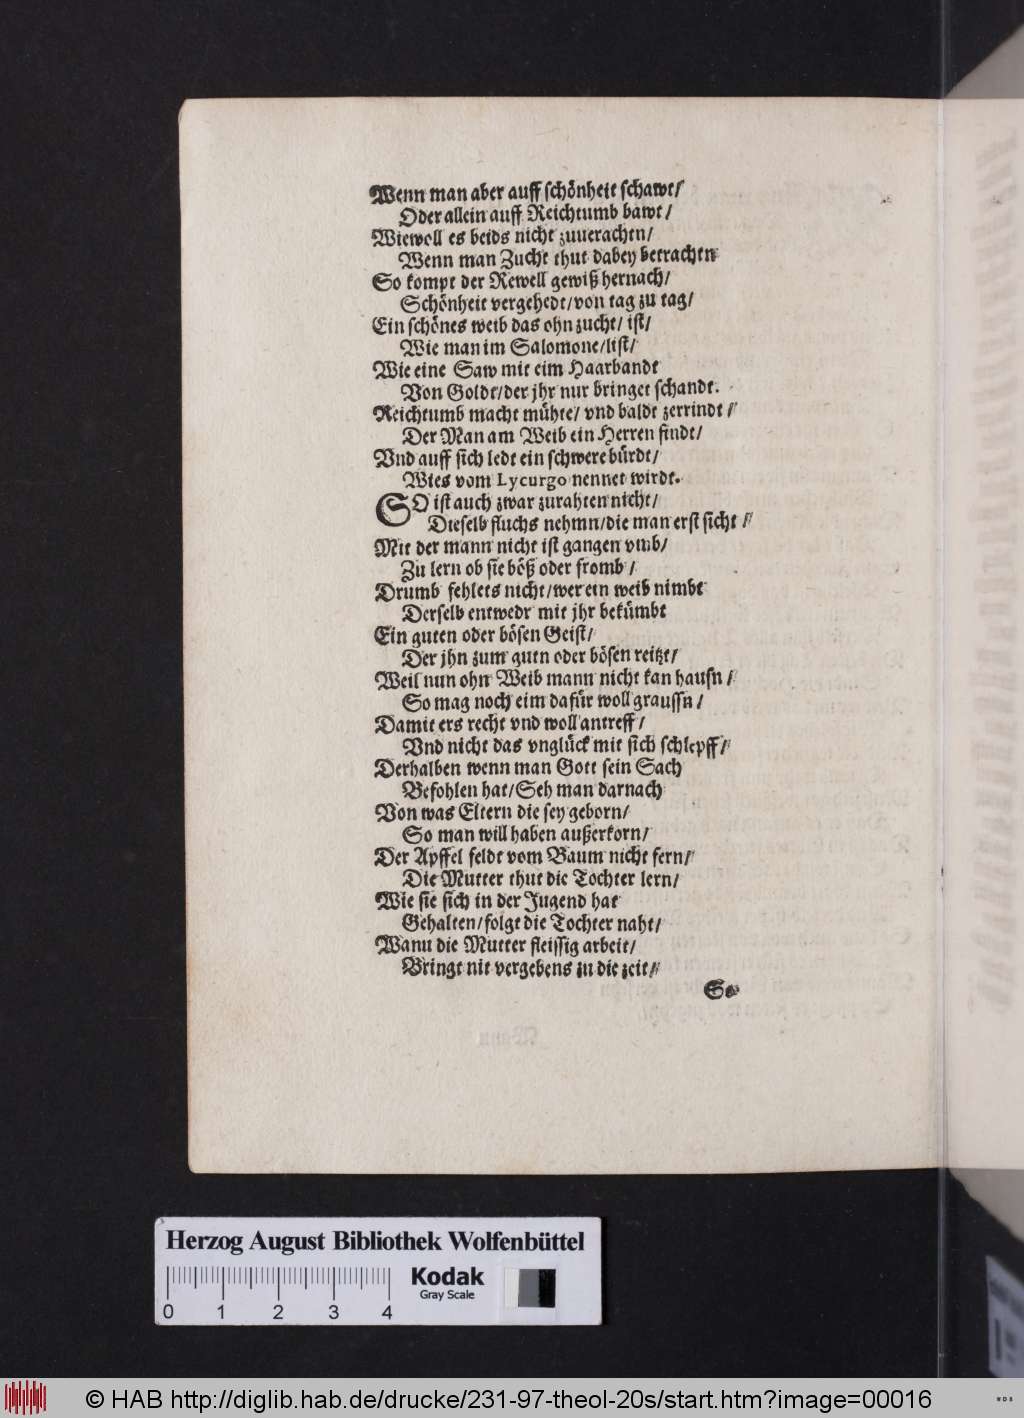 Wenn man aber auff schönheit schawt/
Oder allein auff Reichtumb bawt/
Wiewoll es beids nicht zuuerachten/
Wenn man Zucht thut dabey betrachten
So kompt der Rewell gewiß hernach/
Schönheit vergehedt/von tag zu tag/
Ein schönes weib das ohn zucht/ ist/
Wie man im Salomone/list/
Wie eine Saw mit eim Haarbandt
Von Goldt/der jhr nur bringet schandt.
Reichtumb macht mühte/ vnd baldt zerrindt/
Der Man am Weib ein Herren findt/
Vnd auff sich ledt ein schwere bürdt/
Wies vom Lycurgo nennet wirdt.
SO ist auch zwar zurahten nicht/
Dieselb fluchs nehmn/die man erst sicht/
Mit der mann nicht ist gangen vmb/
Zu lern ob sie böß oder fromb/
Drumb fehlets nicht/wer ein weib nimbt
Derselb entwedr mit jhr bekümbt
Ein guten oder bösen Geist/
Der jhn zum gutn oder bösen reitzt/
Weil nun ohn Weib mann nicht kan hausn/
So mag noch eim dafür woll graussn/
Damit ers recht vnd woll antreff/
Vnd nicht das vnglück mit sich schlepff/
Derhalben wenn man Gott sein Sach
Befohlen hat/Seh man darnach
Von was Eltern die sey geborn/
So man will haben außerkorn/
Der Apffel feldt vom Baum nicht fern/
Die Mutter thut die Tochter lern/
Wie sie sich in der Jugend hat
Gehalten/folgt die Tochter naht/
Wann die Mutter fleissig arbeit/
Bringt nit vergebens zu die zeit/
So
Herzog August Bibliothek Wolfenbüttel
0 1 2 3 4
Kodak
Gray Scale
© HAB http://diglib.hab.de/drucke/231-97-theol-20s/start.htm?image=00016